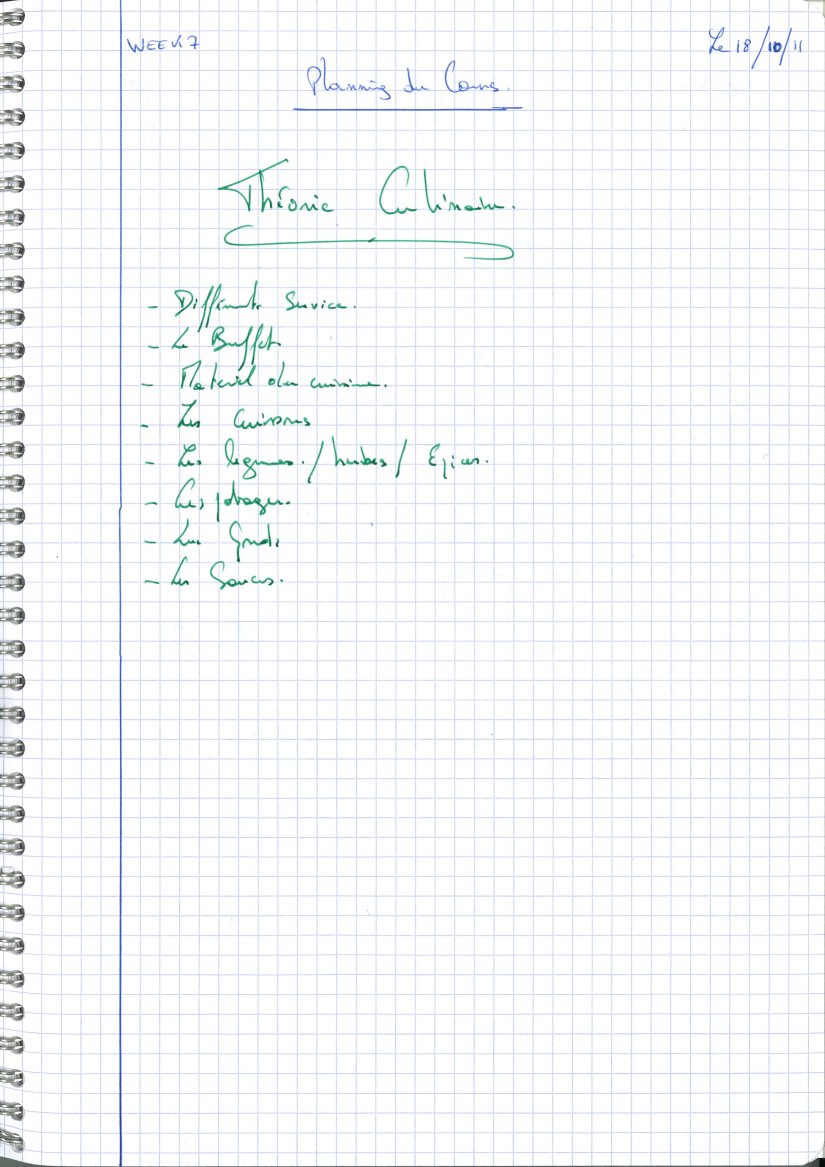 WEEK 7
Le 18/10/11
Planning du Cours.
Théorie Culinaire.
- Différents Service.
- Le Buffet
- Materiel de cuisine.
- Les Cuissons
- Les légumes. / herbes / Epices.
- Les potages.
- Les Fonds
- Les Sauces.